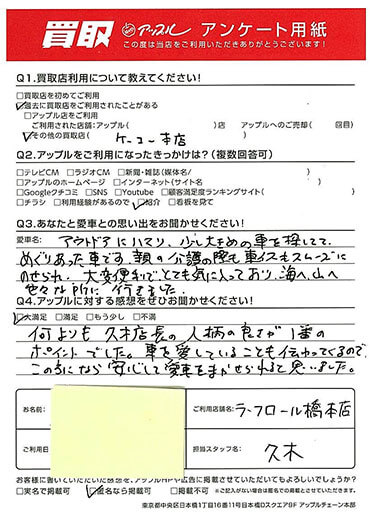 買取 アップル アンケート用紙
この度は当店をご利用いただきありがとうございます!
Q1.買取店利用について教えてください!
□買取店を初めてご利用
□過去に買取店をご利用されたことがある
□アップル店をご利用
ご利用された店舗:アップル( )店 アップルへのご売却( 回目)
□その他の買取店( ケーユー本店 )
Q2.アップルをご利用になったきっかけは?(複数回答可)
□テレビCM □ラジオCM □新聞・雑誌(媒体名/ )
□アップルのホームページ □インターネット(サイト名 )
□Googleクチコミ □SNS □Youtube □顧客満足度ランキングサイト( )
□チラシ □利用経験があるので □紹介 □看板を見て
Q3.あなたと愛車との思い出をお聞かせください!
愛車名: アウトドアにハマリ、少し大きめの車を探してて
めぐりあった車です。親の介護の際も車イスもスムーズに
のせられ、大変便利でとても気に入っており、海へ山へ
色々な所に行きました。
Q4.アップルに対する感想をぜひお聞かせください!
□大満足 □満足 □もう少し □不満
何よりも久木店長の人柄の良さが1番の
ポイントでした。車を愛していることも伝わってくるので、
この方になら安心して愛車をまかせられると思いました。
お名前:
ご利用店舗名: ラ・フロール橋本店
ご利用日
担当スタッフ名: 久木
お客様に書いていただいた感想を、アップルHPや広告に掲載させていただいてもよろしいでしょうか?
□実名で掲載可 □匿名なら掲載可 □掲載不可 ※ご記入がない場合は匿名での掲載とさせていただきます。
東京都中央区日本橋1丁目16番11号日本橋Dスクエア9F アップルチェーン本部